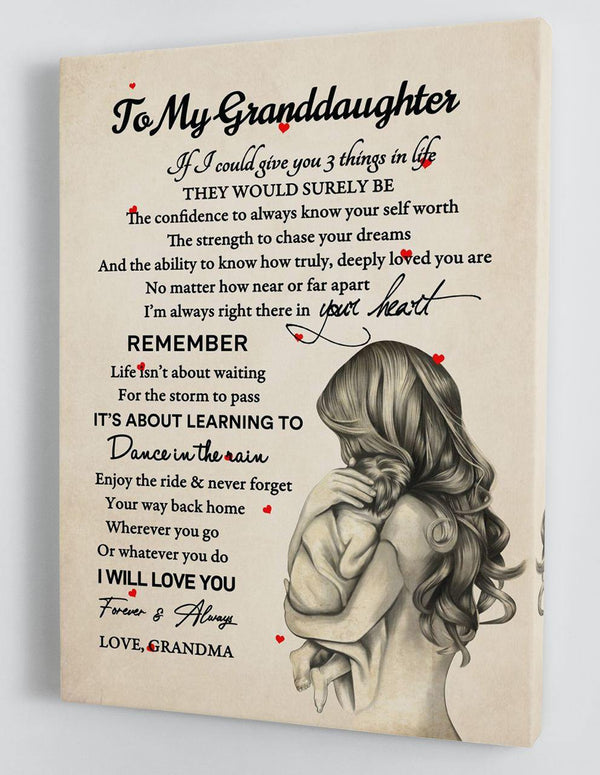 To My Granddaughter
If I could give you 3 things in life
THEY WOULD SURELY BE
The confidence to always know your self worth
The strength to chase your dreams
And the ability to know how truly, deeply loved you are
No matter how near or far apart
I'm always right there in your heart
REMEMBER
Life isn't about waiting
For the storm to pass
IT'S ABOUT LEARNING TO
Dance in the rain
Enjoy the ride & never forget
Your way back home
Wherever you go
Or whatever you do
I WILL LOVE YOU
Forever & Always
LOVE, GRANDMA